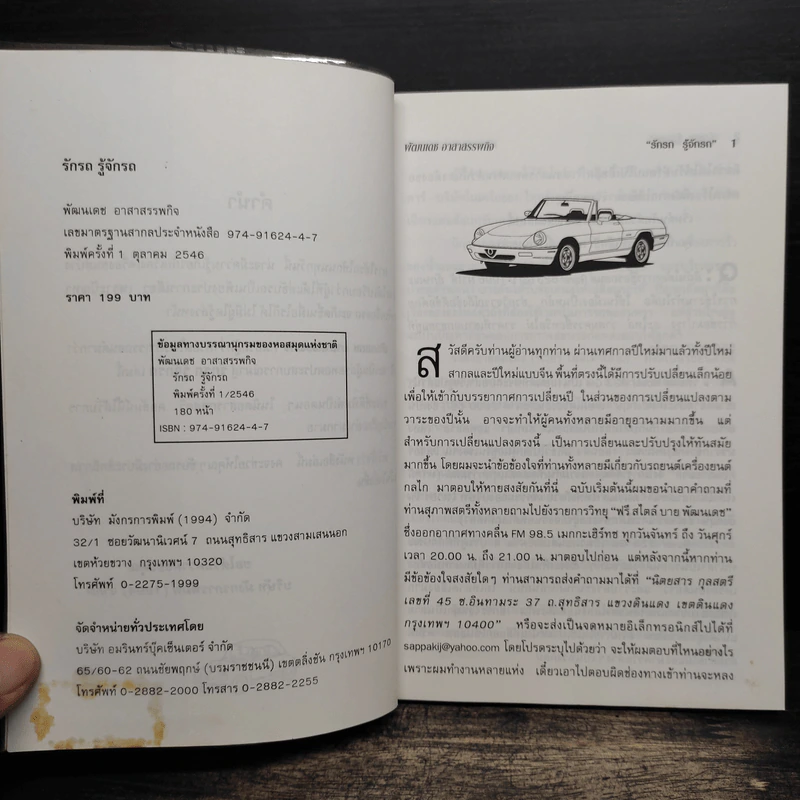 รักรถ รู้จักรถ
พัฒนเดช อาสาสรรพกิจ
เลขมาตรฐานสากลประจำหนังสือ 974-91624-4-7
พิมพ์ครั้งที่ 1 ตุลาคม 2546
ราคา 199 บาท
ข้อมูลทางบรรณานุกรมของหอสมุดแห่งชาติ
พัฒนเดช อาสาสรรพกิจ
รักรถ รู้จักรถ
พิมพ์ครั้งที่ 1/2546
180 หน้า
ISBN : 974-91624-4-7
พิมพ์ที่
บริษัท มังกรการพิมพ์ (1994) จำกัด
32/1 ซอยวัฒนานิเวศน์ 7 ถนนสุทธิสาร แขวงสามเสนนอก
เขตห้วยขวาง กรุงเทพฯ 10320
โทรศัพท์ 0-2275-1999
จัดจำหน่ายทั่วประเทศโดย
บริษัท อมรินทร์บุ๊คเซ็นเตอร์ จำกัด
65/60-62 ถนนชัยพฤกษ์ (บรมราชชนนี) เขตตลิ่งชัน กรุงเทพฯ 10170
โทรศัพท์ 0-2882-2000 โทรสาร 0-2882-2255
พัฒนเดช อาสาสรรพกิจ "รักรถ รู้จักรถ" 1
สวัสดีครับท่านผู้อ่านทุกท่าน ผ่านเทศกาลปีใหม่มาแล้วทั้งปีใหม่
สากลและปีใหม่แบบจีน พื้นที่ตรงนี้ได้มีการปรับเปลี่ยนเล็กน้อย
เพื่อให้เข้ากับบรรยากาศการเปลี่ยนปี ในส่วนของการเปลี่ยนแปลงตาม
วาระของปีนั้น อาจจะทำให้ผู้คนทั้งหลายมีอายุอานามมากขึ้น แต่
สำหรับการเปลี่ยนแปลงตรงนี้ เป็นการเปลี่ยนและปรับปรุงให้ทันสมัย
มากขึ้น โดยผมจะนำข้อข้องใจที่ท่านทั้งหลายมีเกี่ยวกับรถยนต์เครื่องยนต์
กลไก มาตอบให้หายสงสัยกันที่นี่ ฉบับเริ่มต้นนี้ผมขอนำเอาคำถามที่
ท่านสุภาพสตรีทั้งหลายถามไปยังรายการวิทยุ "ฟรี สไตล์ บาย พัฒนเดช"
ซึ่งออกอากาศทางคลื่น FM 98.5 เมกกะเฮิร์ทซ ทุกวันจันทร์ ถึง วันศุกร์
เวลา 20.00 น. ถึง 21.00 น. มาตอบไปก่อน แต่หลังจากนี้หากท่าน
มีข้อข้องใจสงสัยใดๆ ท่านสามารถส่งคำถามมาได้ที่ "นิตยสาร กุลสตรี
เลขที่ 45 ซ.อินทามระ 37 ถ.สุทธิสาร แขวงดินแดง เขตดินแดง
กรุงเทพฯ 10400" หรือจะส่งเป็นจดหมายอิเล็กทรอนิกส์ไปได้ที่
sappakij@yahoo.com โดยโปรดระบุไปด้วยว่า จะให้ผมตอบที่ไหนอย่างไร
เพราะผมทำงานหลายแห่ง เดี๋ยวเอาไปตอบผิดช่องทางเข้าท่านจะหลง